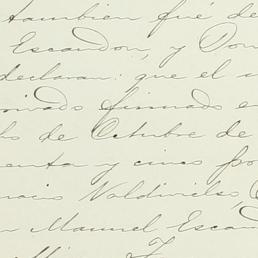 tambien fué de
Escandon, y Don
declaran: que el
privado firmado en
de Octubre de
enta y cinco por
nacio Valdivielso,
Manuel Escan